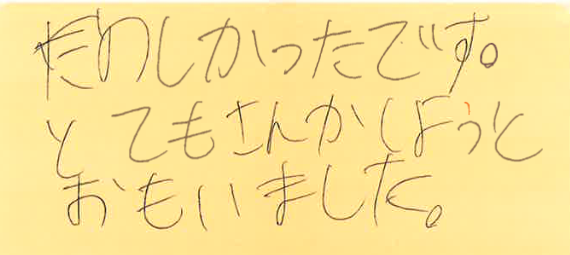 たのしかったです。
とてもさんかしようと
おもいました。